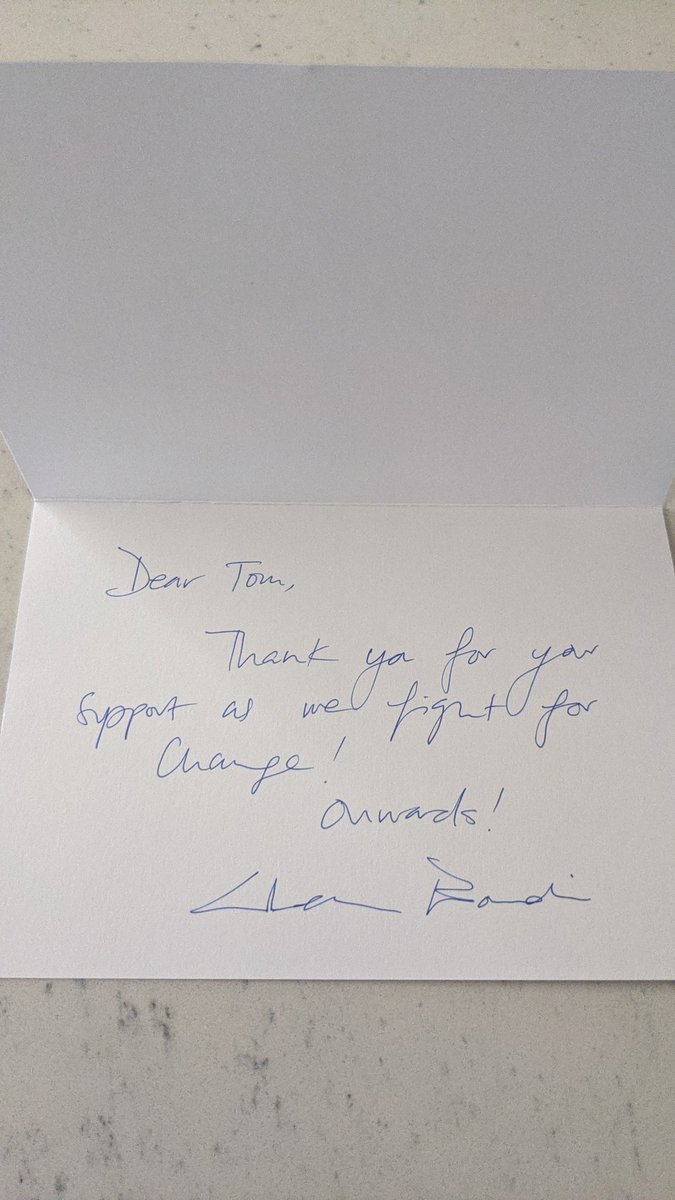 Dear Tom,
Thank you for your
support as we fight for
Change!
Onwards!